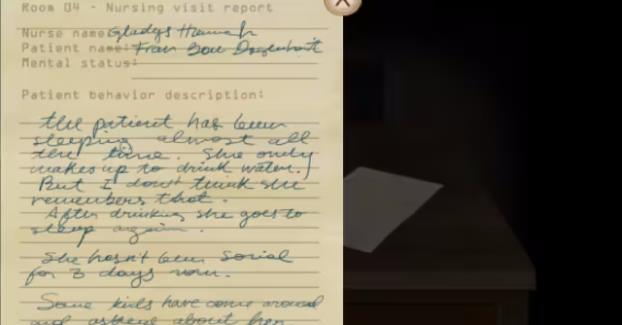 Room 04 - Nursing visit report
Nurse name: Gladys
Patient name: Fran Bow Dagenhart
Mental status:
Patient behavior description:
The patient has been
sleeping almost all
the time. She only
wakes up to drink water.
But I don't think she
remembers that.
After drinking she goes to
sleep again.
She hasn't been social
for 3 days now.
Some kids have come around
and asking about her